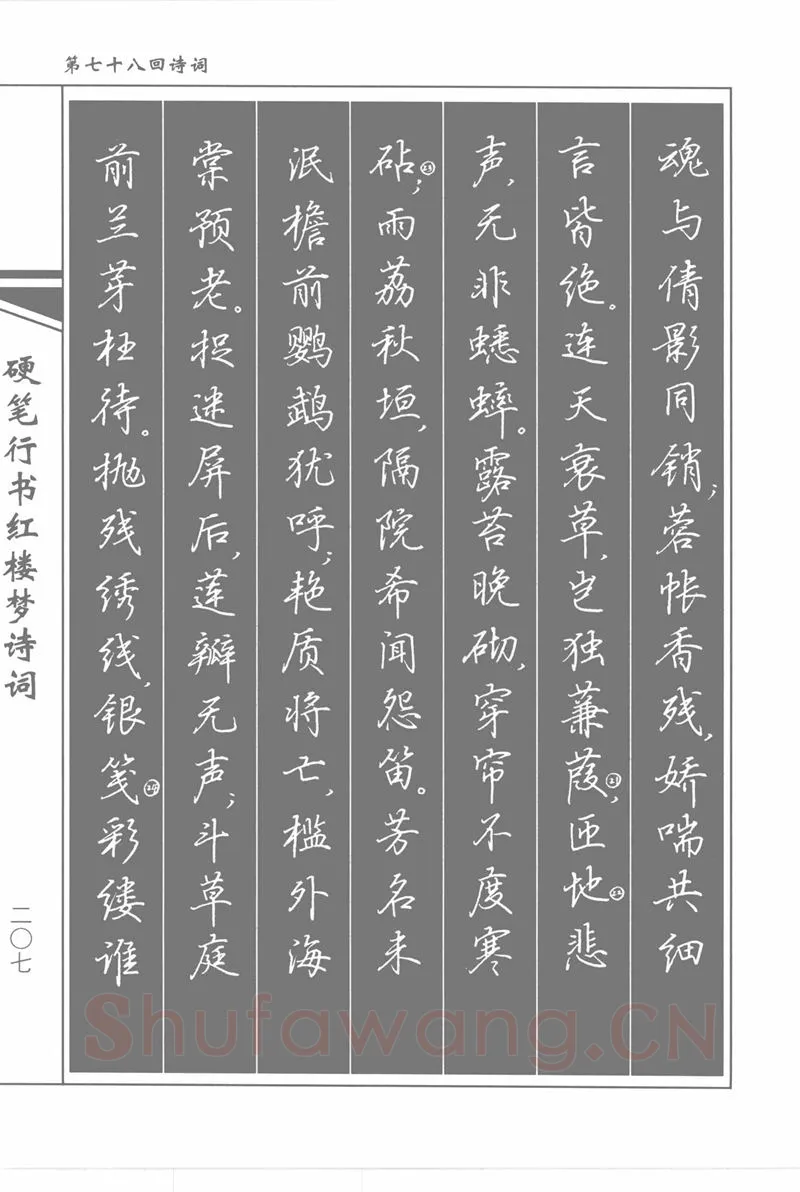 第七十八回诗词
魂与倩影同销；蓉帐香残，娇喘共细
言皆绝。连天衰草，岂独蒹葭㉑，匝地㉒悲
声，无非蟋蟀。露苔晚砌，穿帘不度寒
砧㉓；雨荔秋垣，隔院希闻怨笛。芳名未
泯檐前鹦鹉犹呼；艳质将亡，槛外海
棠预老。捉迷屏后，莲瓣无声；斗草庭
前兰芽枉待。抛残绣线，银笺㉔彩缕谁
硬笔行书红楼梦诗词
二〇七
Shufawang.CN